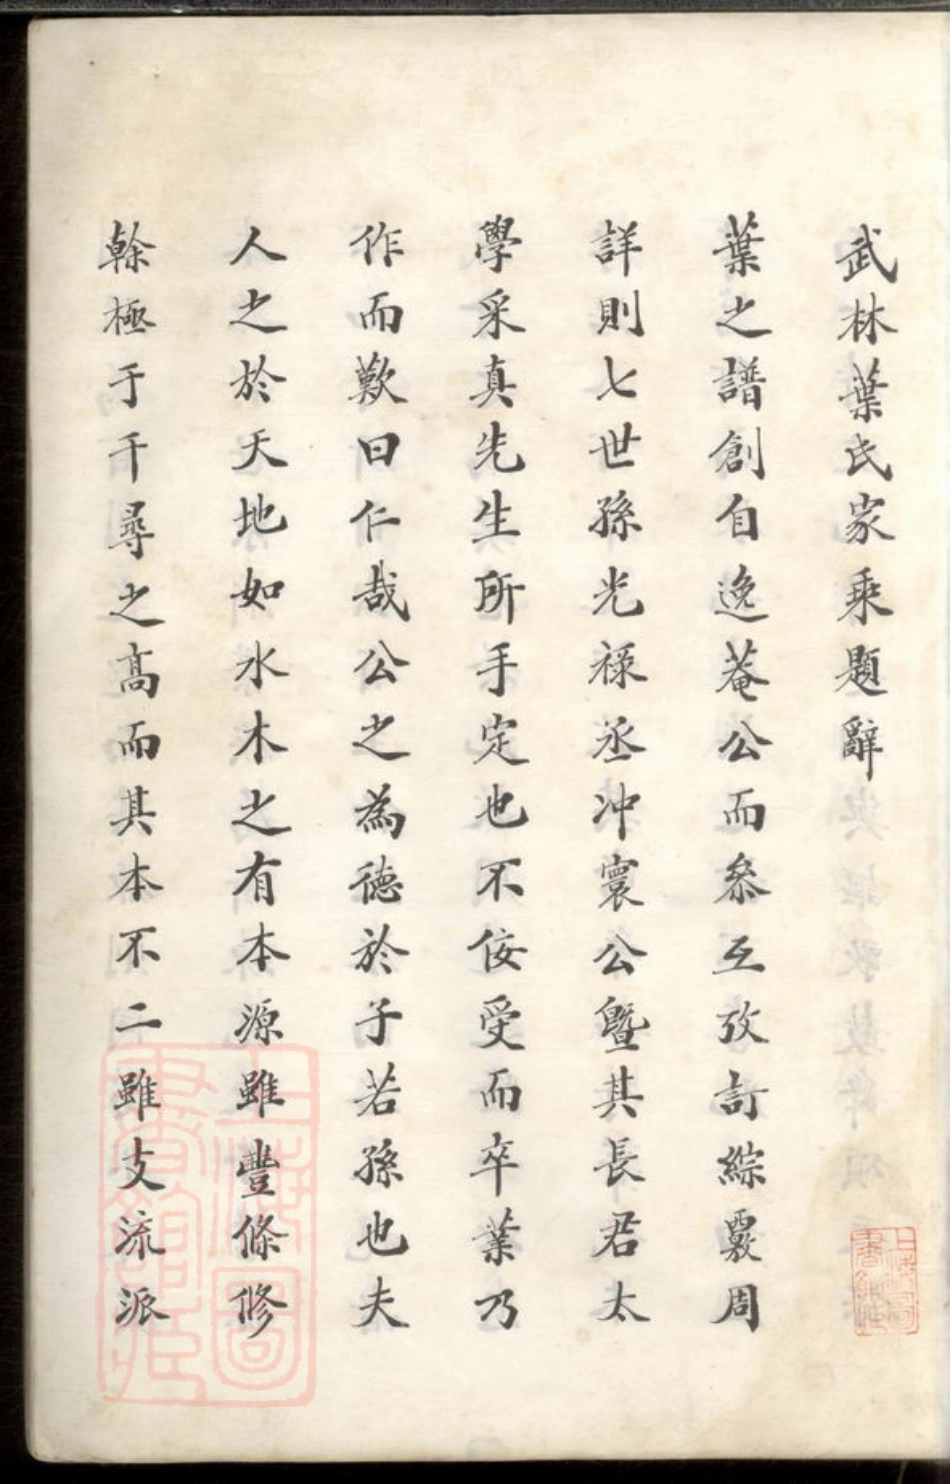 武林葉氏家乘題辭
葉之譜創自逸菴公而叅互攷訂綜覈周
詳則七世孫光祿丞冲寰公曁其長君太
學采真先生所手定也不佞受而卒業乃
作而歎曰仁哉公之為德於子若孫也夫
人之於天地如水木之有本源雖豐條修
榦極于千尋之高而其本不二雖支流派
上海圖書館藏
上海圖書館藏